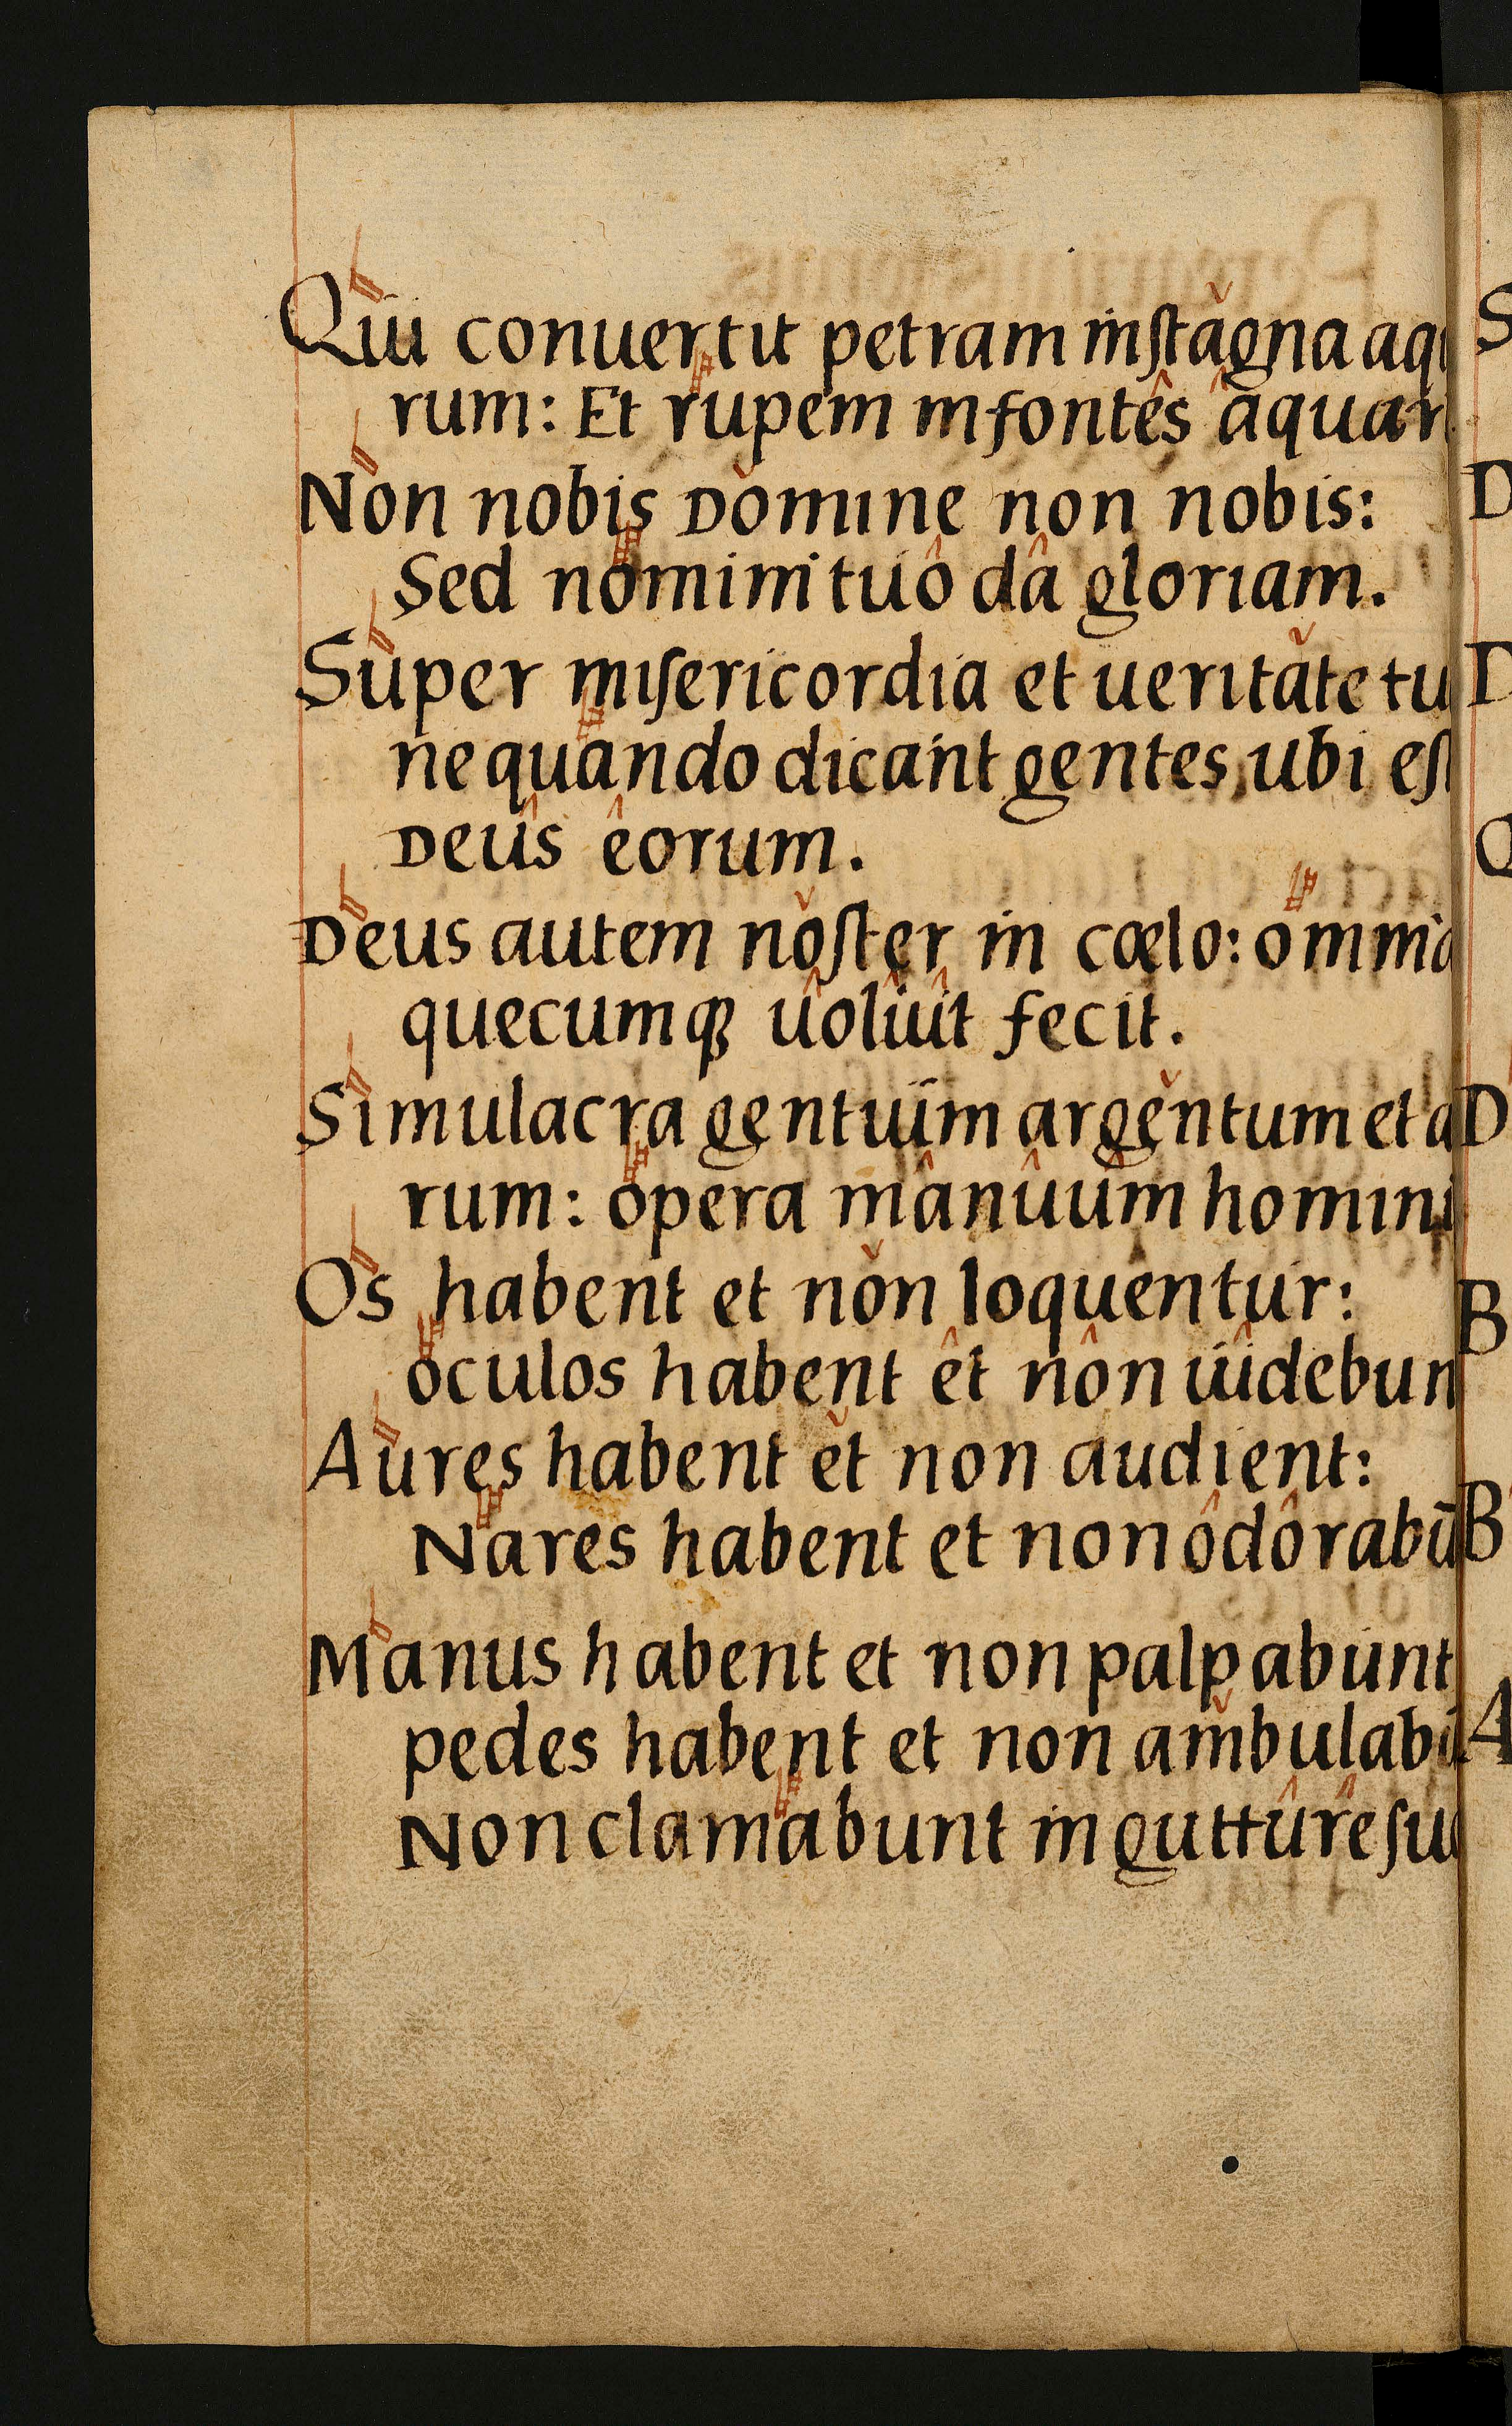 Qui conuertit petram in ſtagna aqu
rum: Et rupem in fontes aquar
Non nobis Domine non nobis:
Sed nomini tuo da gloriam.
Super miſericordia et ueritate tu
ne quando dicant gentes, ubi eſt
Deus eorum.
Deus autem noſter in cœlo: omnia
quecumqꝫ uoluit fecit.
Simulacra gentium argentum et a
rum: opera manuum homini
Os habent et non loquentur:
oculos habent et non uidebun
Aures habent et non audient:
Nares habent et non odorabū
Manus habent et non palpabunt
pedes habent et non ambulabū
Non clamabunt in gutture ſuo
S
D
D
O
D
B
B
A